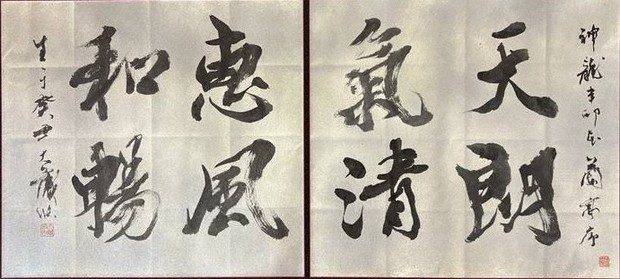 神龍本
蘭亭序
天朗
氣清
惠風
和暢
生于癸丑